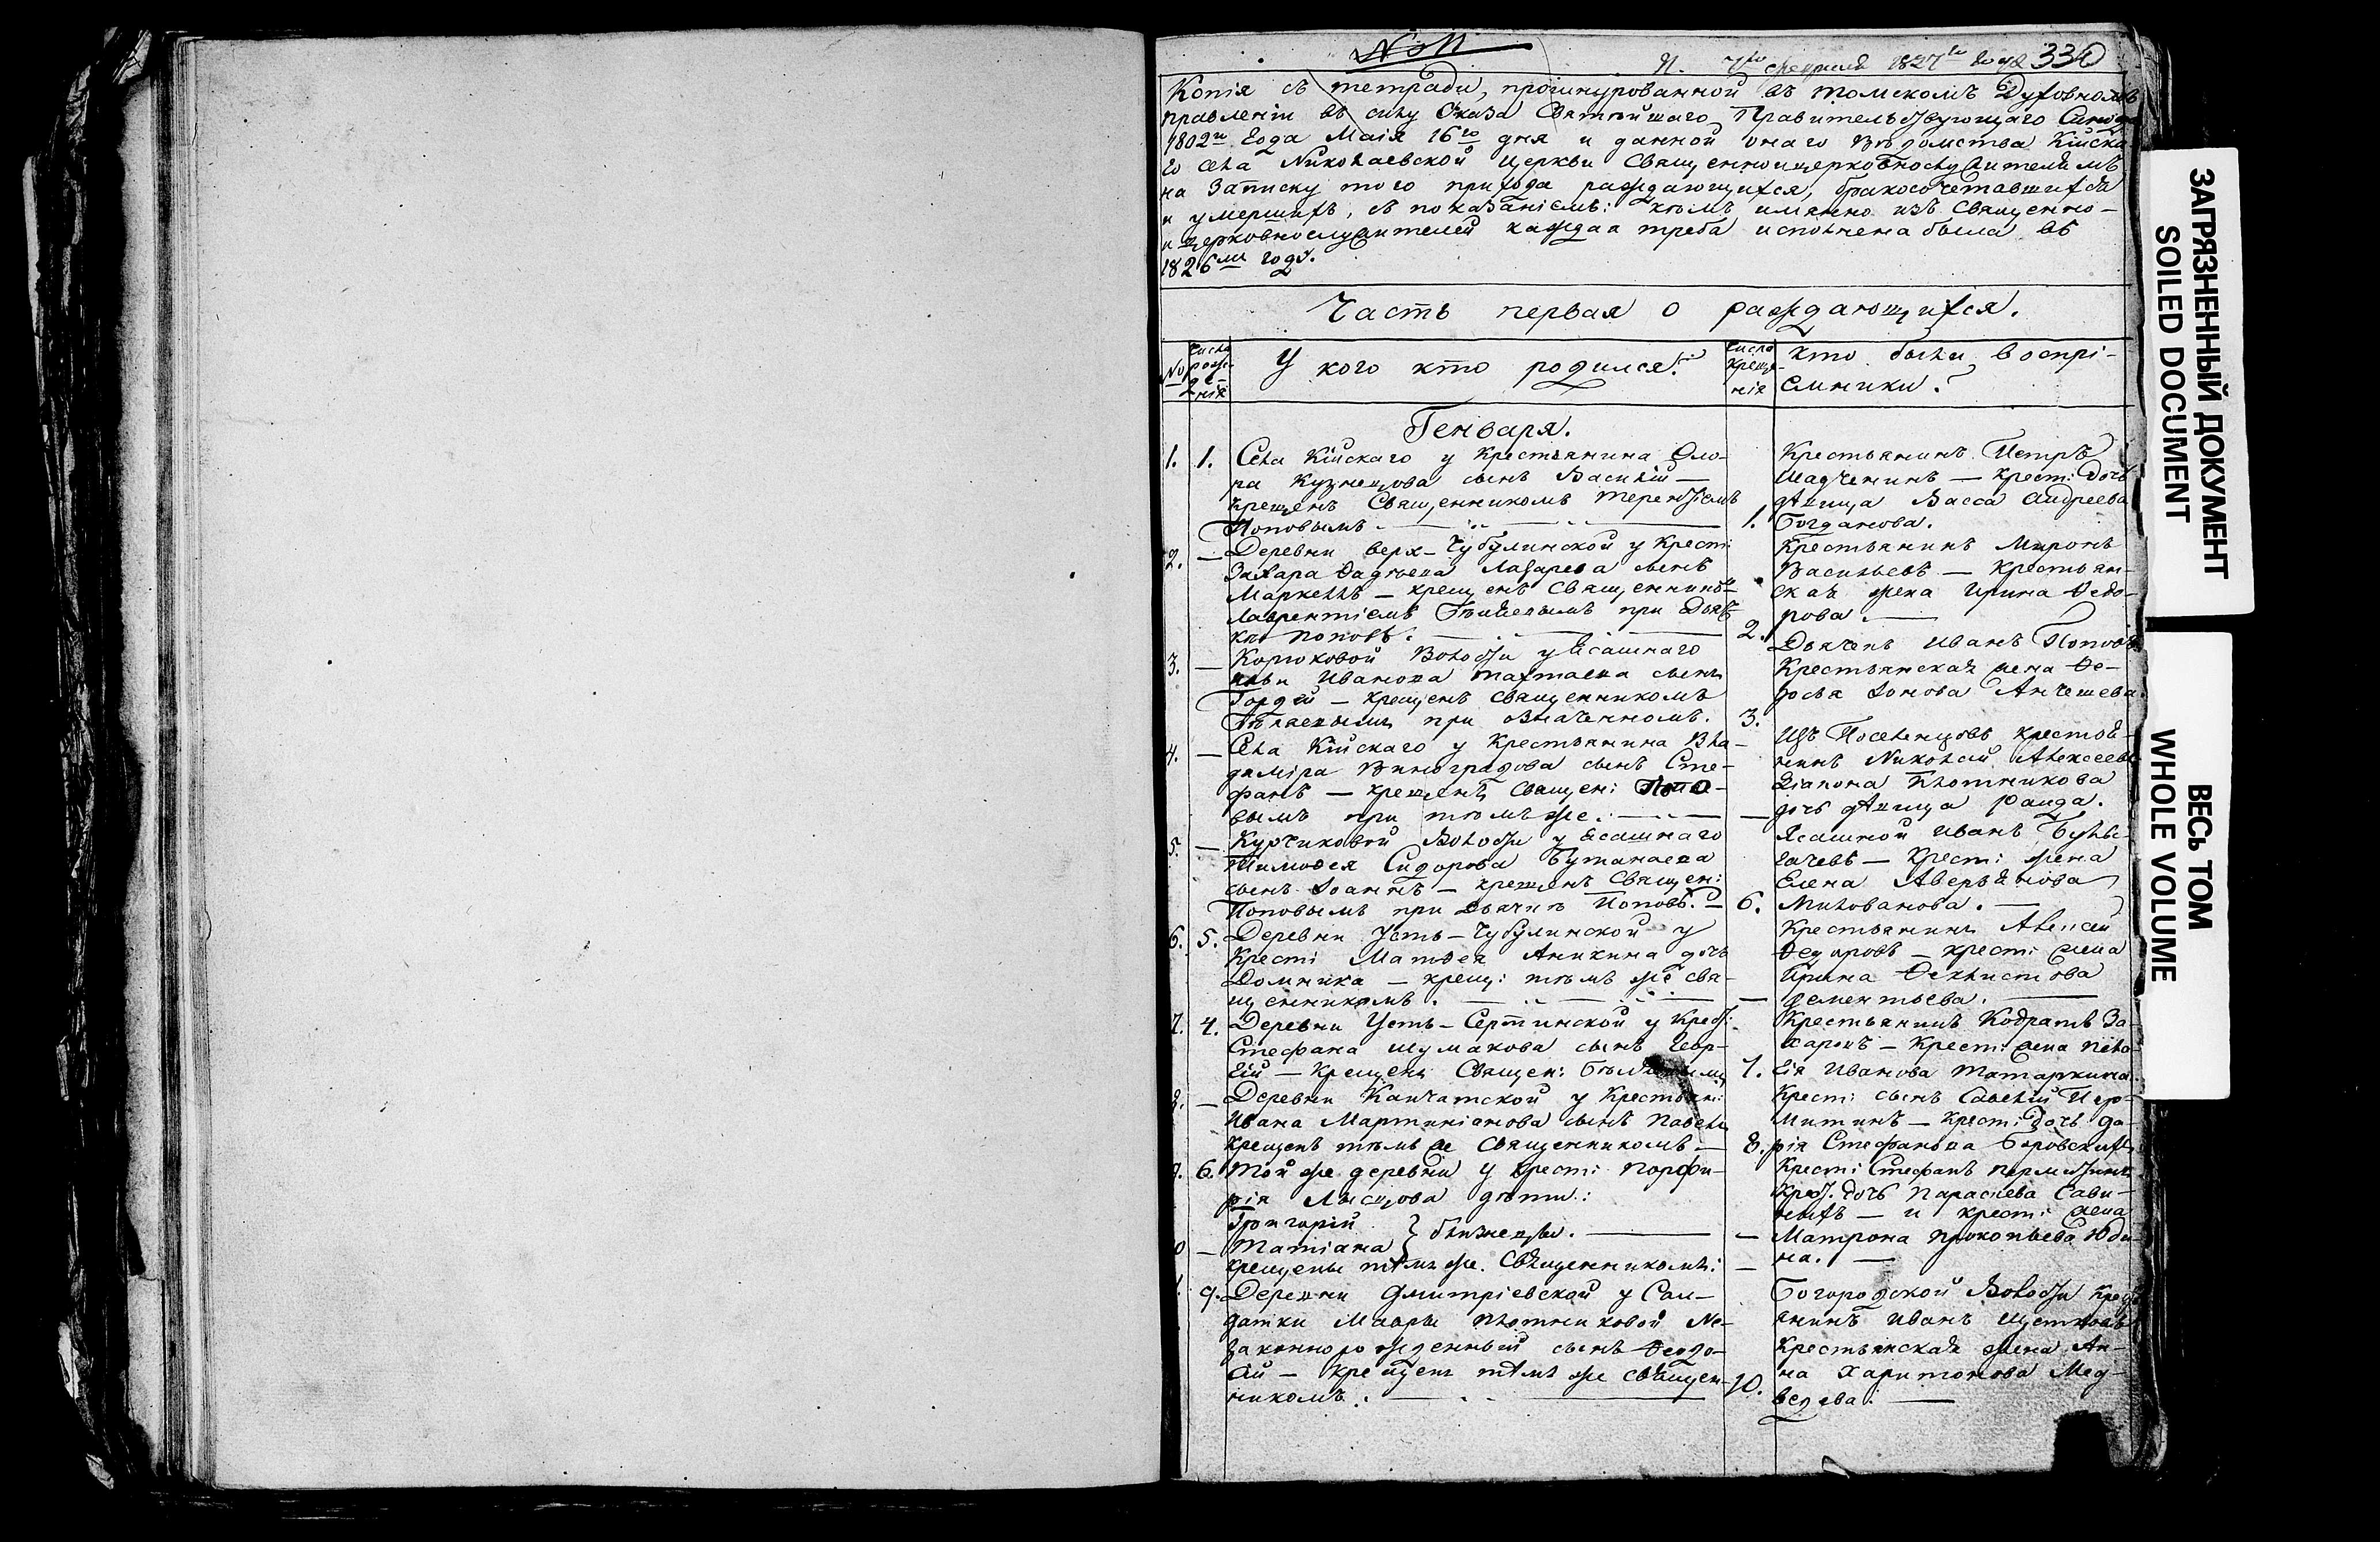 № 11
П. 7го февраля 1827го года 334
Копія съ тетради, прошнурованной въ Томскомъ Духовномъ
правленіи въ силу Указа Святѣйшаго Правительствующаго Синода
1802го года Маія 16го дня и данной онаго вѣдомства Кійска-
го села Николаевской церкви Священноцерковнослужителямъ
на записку того прихода раждающихся, бракосочетавшихся
и умершихъ, съ показаніемъ: кѣмъ имянно изъ Священно-
и церковнослужителей каждая треба исполнена была въ
1826мъ году.
Часть первая о раждающихся.
№
Числа рожде-нія
У кого кто родился?
Число креще-нія
Кто были воспрі-
емники?
Генваря.
1. 1. Села Кійскаго у Крестьянина Фло-
ра Кузнецова сынъ Василій —
крещенъ Священникомъ Терентіемъ
Поповымъ. —
1.
Крестьянинъ Петръ
Шадченинъ — крест: дочь
дѣвица Васса Андреева
Богданова.
2. — Деревни верх-Чубулинской у Крест:
Захара Фадѣева Лазарева сынъ
Маркеллъ — крещенъ Священником
Лаврентіемъ Бѣляевымъ при Дьяч-
кѣ Поповѣ. —
2.
Крестьянинъ Миронъ
Васильевъ — крестьян-
ская жена Ирина Федо-
рова. —
3. — Корюковой Волости у Ясашнаго
Ильи Иванова Тахтаева сынъ
Гордей — крещенъ Священникомъ
Бѣляевымъ при означенномъ.
3.
Дьячекъ Иванъ Поповъ
Крестьянская жена Фе-
досья Ионова Анчешева.
4. — Села Кійскаго у Крестьянина Вла-
диміра Виноградова сынъ Сте-
фанъ — крещенъ Священ: Попо-
вымъ при томъ же. —
—
Изъ Поселенцовъ крестья-
нинъ Николай Алексеевъ
Діакона Плотникова
дочь дѣвица Раида.
5. — Курчиковой Волости у Ясашнаго
Тимофея Сидорова Бутанаева
сынъ Іоаннъ — крещенъ Священ:
Поповымъ при дьячкѣ Поповѣ. —
6.
Ясашной Иванъ
— Крест: жена
Елена Аверьянова
Милованова. —
6. 5. Деревни Усть-Чубулинской у
Крест: Матвея Аникина дочь
Домника — крещ: тѣмъ же свя-
щенникомъ. —
—
Крестьянинъ Алексей
Федоровъ — крест: жена
Ирина Феклистова
Дементьева. —
7. 4. Деревни Усть-Сертинской у Крест:
Стефана Шумакова сынъ Геор-
гій — Крещенъ Священ: Бѣляевымъ
7.
Крестьянинъ Кодратъ За-
харовъ — Крест: жена Пела-
гія Иванова Татаркина.
8. — Деревни Камчатской у Крестьян:
Ивана Мартиніанова сынъ Павелъ
крещенъ тѣмъ же Священникомъ —
8.
Крест: сынъ Савелій Пер-
митинъ — крест: дочь Да-
рія Стефанова Боровскихъ
9. 6. Той же деревни у крест: Порфи-
рія Лысцова дѣти:
Григорій
10 — Татіана } близнецы. —
крещены тѣмъ же Священникомъ: —
Крест: Стефанъ Пермитинъ
Крест. дочь Параскева Сави-
ныхъ — и крест: жена
— Матрона Прокопьева Юди
на. —
9. Деревни Дмитріевской у Сол-
датки Мавры Плотниковой не-
законнорожденный сынъ Феодо-
сій — Крещенъ тѣмъ же Священ-
никомъ. —
10.
Богородской Волости Крест
янинъ Иванъ
Крестьянская жена Ан-
на Харитонова Мед-
ведева. —
ЗАГРЯЗНЕННЫЙ ДОКУМЕНТ
SOILED DOCUMENT
ВЕСЬ ТОМ
WHOLE VOLUME